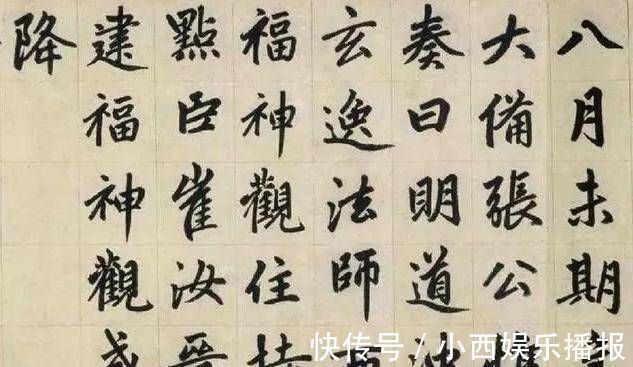 八月未期
大備張公
奏曰明道
玄逸法師
福神觀住持
點臣崔汝晉
建福神觀
降
快传号 / 小西娱乐播报